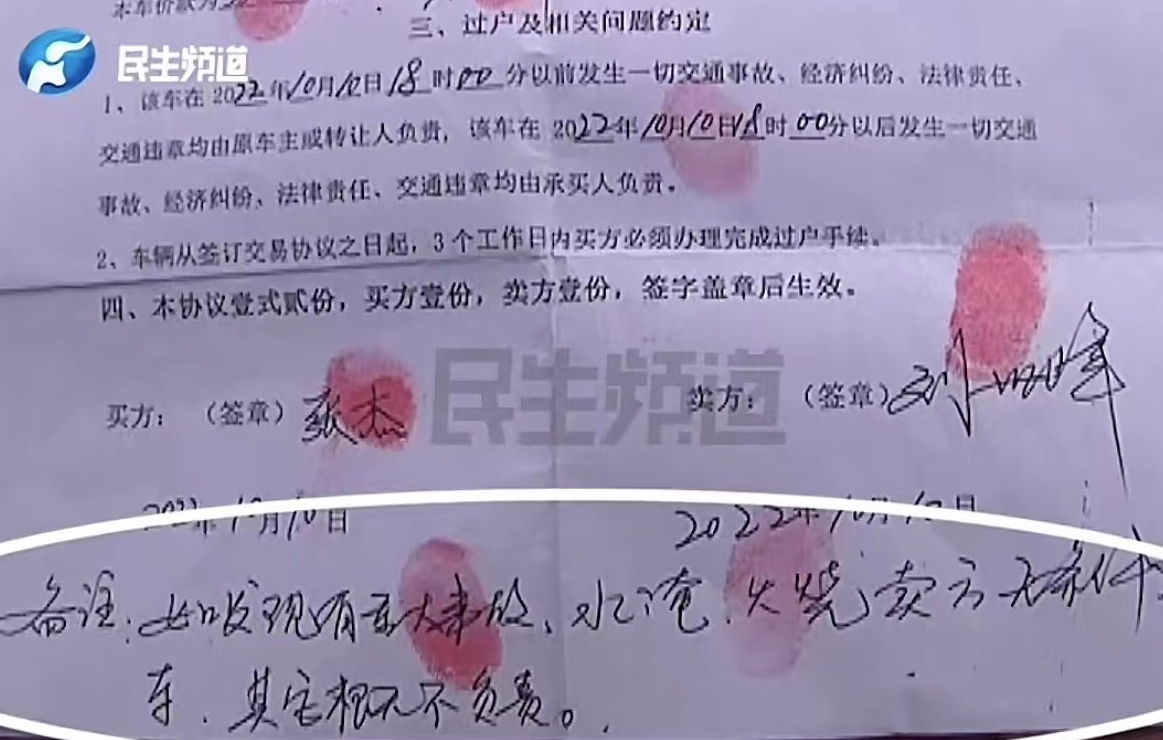 本车价款为
三、过户及相关问题约定
民生频道
1、该车在 2022年10月10日18时00分以前发生一切交通事故、经济纠纷、法律责任、
交通违章均由原车主或转让人负责，该车在 2022年10月10日18时00分以后发生一切交通
事故、经济纠纷、法律责任、交通违章均由承买人负责。
2、车辆从签订交易协议之日起，3个工作日内买方必须办理完成过户手续。
四、本协议壹式贰份，买方壹份，卖方壹份，签字盖章后生效。
民生频道
买方：（签章）张杰 卖方：（签章）刘
2022年10月10日 2022年10月10日
备注：如发现有重大事故、水淹、火烧卖方无条件
车、其它概不负责。